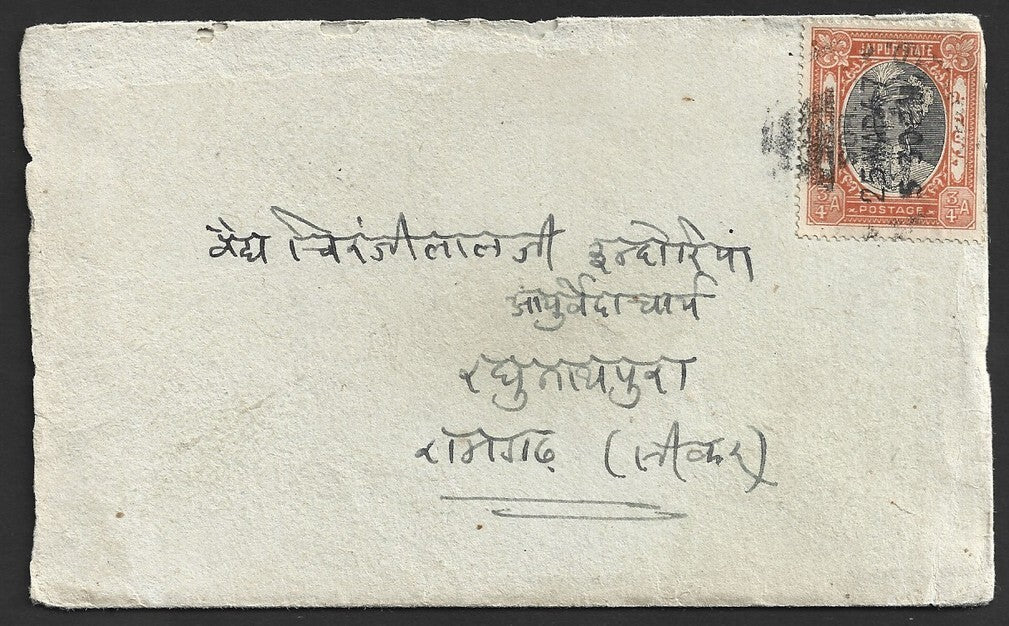 JAIPUR STATE
3/4 A
3/4 A
POSTAGE
वैद्य चिरंजीलालजी इन्दोरियां
आयुर्वेदाचार्य
रघुनाथपुरा
रामगढ़ (सीकर)